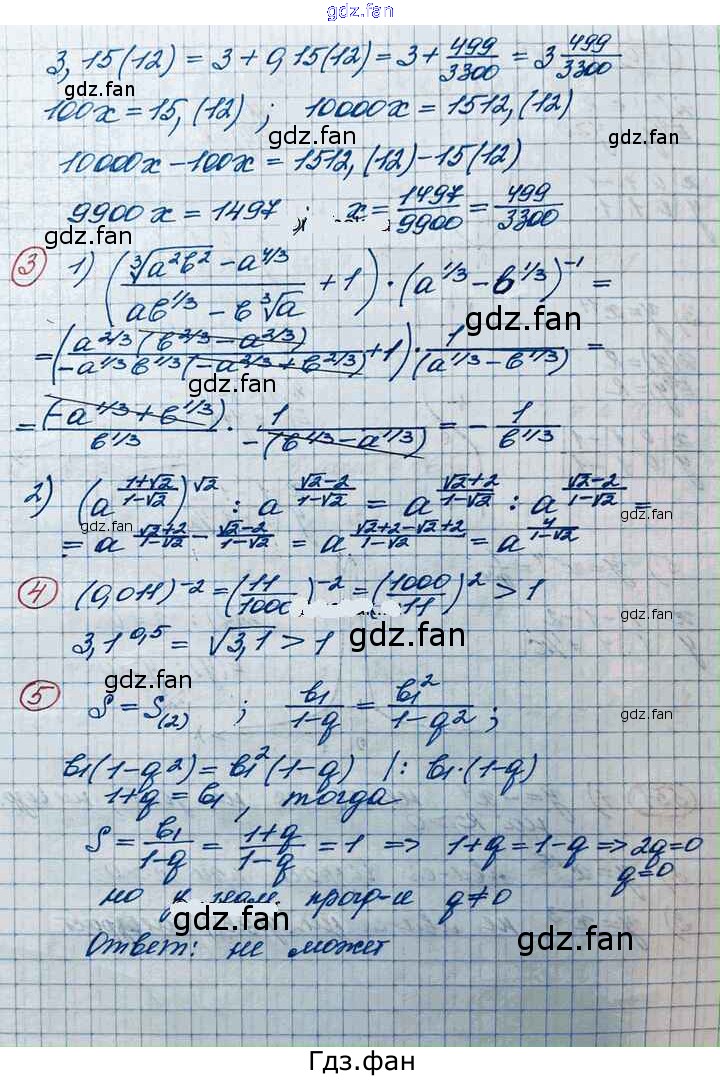 gdz.fan
3,15(12) = 3 + 0,15(12) = 3 + 499/3300 = 3 499/3300
gdz.fan
gdz.fan
100x = 15,(12) ; 10000x = 1512,(12)
gdz.fan
10000x - 100x = 1512,(12) - 15(12)
9900x = 1497 ; x = 1497/9900 = 499/3300
gdz.fan
gdz.fan
③ 1) ((∛(a²b²) - a^(4/3))/(ab^(1/3) - b∛a) + 1) · (a^(1/3) - b^(1/3))^(-1) =
gdz.fan
= ((a^(2/3)(b^(2/3) - a^(2/3)))/(-a^(1/3)b^(1/3)(-a^(2/3) + b^(2/3))) + 1) · 1/(a^(1/3) - b^(1/3)) =
gdz.fan
= (-a^(1/3) + b^(1/3))/b^(1/3) · 1/(-(b^(1/3) - a^(1/3))) = - 1/b^(1/3)
gdz.fan
gdz.fan
2) (a^((1+√2)/(1-√2)))^√2 : a^((√2-2)/(1-√2)) = a^((√2+2)/(1-√2)) : a^((√2-2)/(1-√2)) =
gdz.fan
gdz.fan
= a^((√2+2)/(1-√2) - (√2-2)/(1-√2)) = a^((√2+2-√2+2)/(1-√2)) = a^(4/(1-√2))
gdz.fan
④ (0,011)^(-2) = (11/1000)^(-2) = (1000/11)² > 1
gdz.fan
3,1^0,5 = √3,1 > 1
gdz.fan
gdz.fan
⑤ S = S(2) ; b1/(1-q) = b1²/(1-q²) ;
gdz.fan
b1(1-q²) = b1²(1-q) |: b1·(1-q)
gdz.fan
1+q = b1, тогда
S = b1/(1-q) = (1+q)/(1-q) = 1 => 1+q = 1-q => 2q=0
gdz.fan
q=0
но у геом. прогр-и q≠0
gdz.fan
gdz.fan
Ответ: не может
Гдз.фан